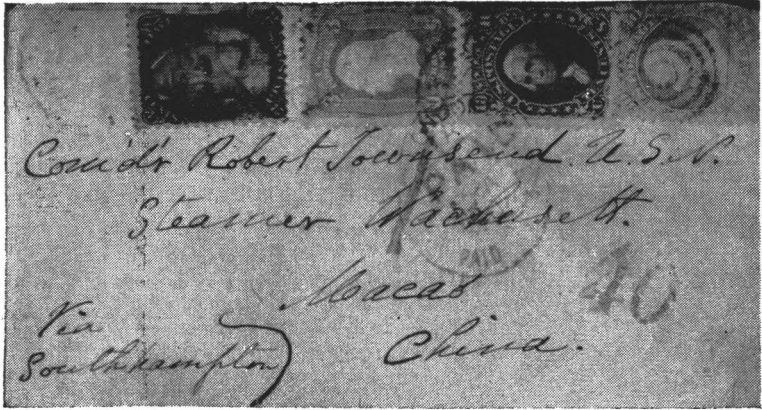 Com'd'r Robert Townsend. U.S.N.
Steamer Wachusett.
PAID
Macao
40
China.
Via
Southhampton